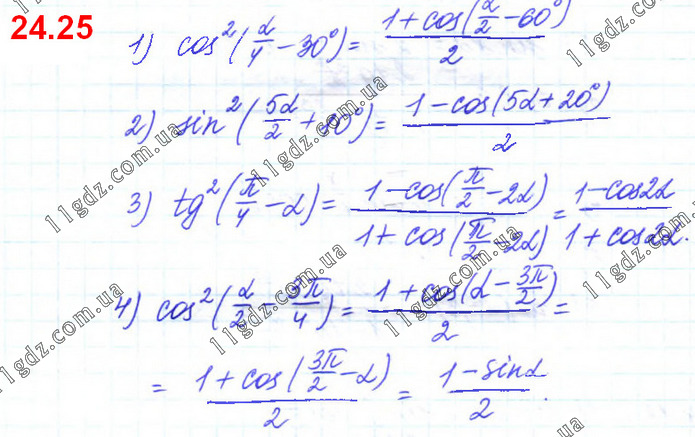 24.25
1) cos²(α/4 − 30°) = (1 + cos(α/2 − 60°))/2
2) sin²(5α/2 + 10°) = (1 − cos(5α + 20°))/2
3) tg²(π/4 − α) = (1 − cos(π/2 − 2α))/(1 + cos(π/2 − 2α)) = (1 − cos2α)/(1 + cos2α).
4) cos²(α/2 − 3π/4) = (1 + cos(α − 3π/2))/2 =
= (1 + cos(3π/2 − α))/2 = (1 − sinα)/2.
11gdz.com.ua
11gdz.com.ua
11gdz.com.ua
11gdz.com.ua
11gdz.com.ua
11gdz.com.ua